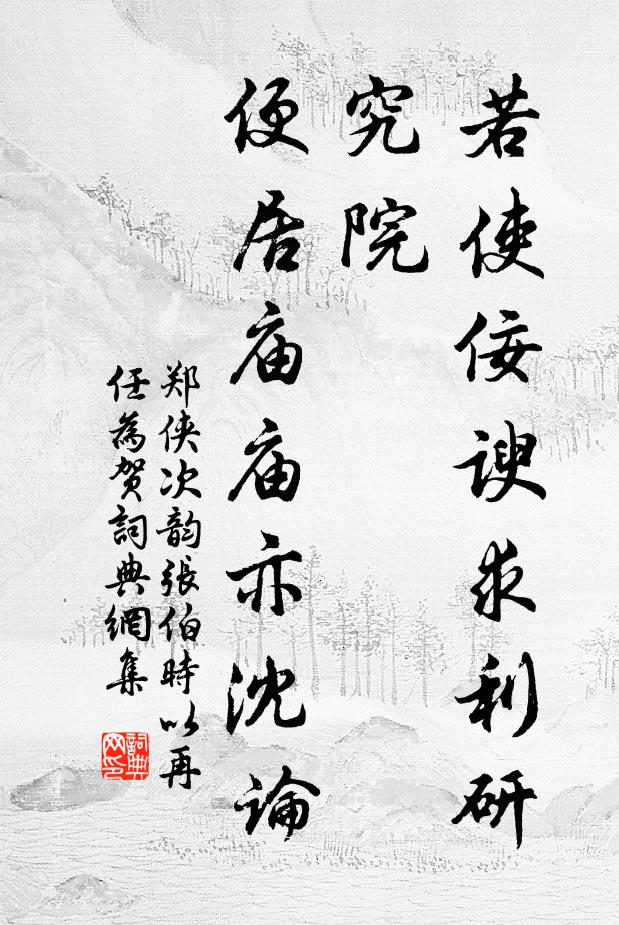 若使佞謏求利研
究院
便居庙庙亦沈論
郑侠次韵張伯時以再
任為贺詞典網集
詞典
网印